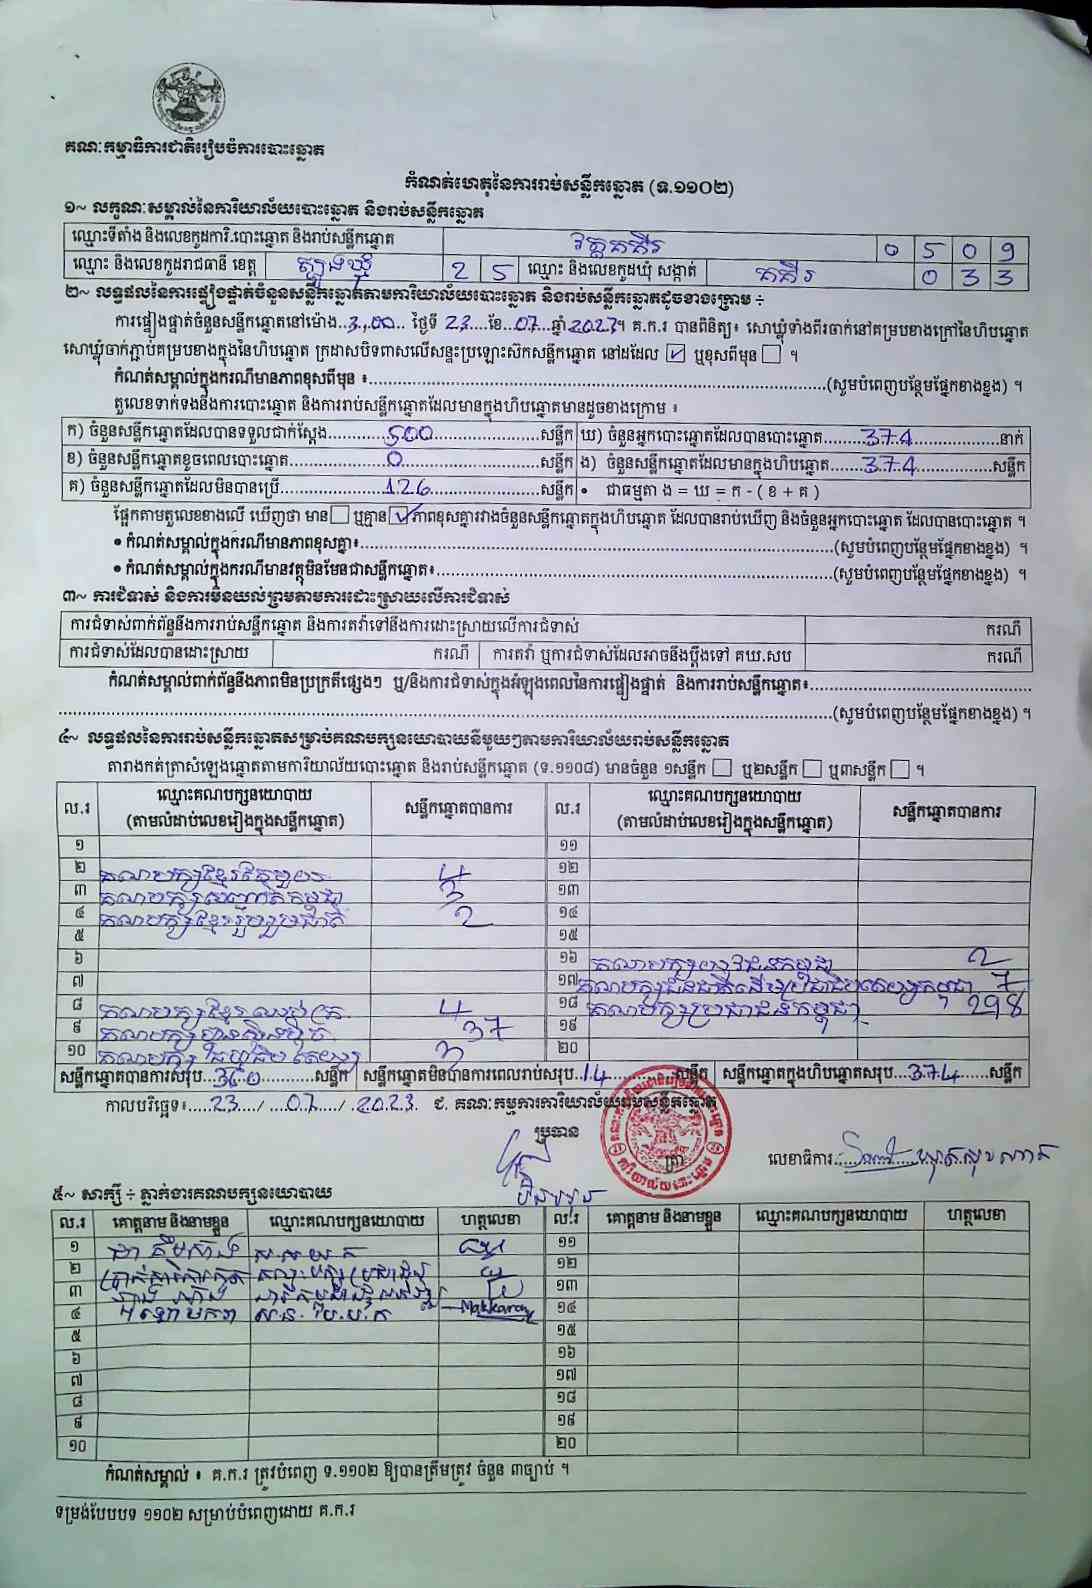 គណៈកម្មាធិការជាតិរៀបចំការបោះឆ្នោត
កំណត់ហេតុនៃការរាប់សន្លឹកឆ្នោត (ទ.១១០២)
១~ លក្ខណៈសម្គាល់នៃការិយាល័យបោះឆ្នោត និងរាប់សន្លឹកឆ្នោត
ឈ្មោះទីតាំង និងលេខកូដការិ.បោះឆ្នោត និងរាប់សន្លឹកឆ្នោត វត្តគគីរ 0 5 0 9
ឈ្មោះ និងលេខកូដរាជធានី ខេត្ត ត្បូងឃ្មុំ 2 5 ឈ្មោះ និងលេខកូដឃុំ សង្កាត់ គគីរ 0 3 3
២~ លទ្ធផលនៃការផ្ទៀងផ្ទាត់ចំនួនសន្លឹកឆ្នោតតាមការិយាល័យបោះឆ្នោត និងរាប់សន្លឹកឆ្នោតដូចខាងក្រោម ÷
ការផ្ទៀងផ្ទាត់ចំនួនសន្លឹកឆ្នោតនៅម៉ោង..3,00.. ថ្ងៃទី 23....ខែ...07...ឆ្នាំ.2023។ គ.ក.រ បានពិនិត្យ៖ សោឃ្លុំទាំងពីរចាក់នៅគម្របខាងក្រៅនៃហិបឆ្នោត
សោឃ្លុំចាក់ភ្ជាប់គម្របខាងក្នុងនៃហិបឆ្នោត ក្រដាសបិទពាសលើសន្ទះប្រឡោះស៊កសន្លឹកឆ្នោត នៅដដែល ☑ ឬខុសពីមុន ☐ ។
កំណត់សម្គាល់ក្នុងករណីមានភាពខុសពីមុន ៖.....(សូមបំពេញបន្ថែមផ្នែកខាងខ្នង) ។
តួលេខទាក់ទងនឹងការបោះឆ្នោត និងការរាប់សន្លឹកឆ្នោតដែលមានក្នុងហិបឆ្នោតមានដូចខាងក្រោម ៖
ក) ចំនួនសន្លឹកឆ្នោតដែលបានទទួលជាក់ស្ដែង.....500.....សន្លឹក ឃ) ចំនួនអ្នកបោះឆ្នោតដែលបានបោះឆ្នោត.....374.....នាក់
ខ) ចំនួនសន្លឹកឆ្នោតខូចពេលបោះឆ្នោត.....0.....សន្លឹក ង) ចំនួនសន្លឹកឆ្នោតដែលមានក្នុងហិបឆ្នោត.....374.....សន្លឹក
គ) ចំនួនសន្លឹកឆ្នោតដែលមិនបានប្រើ.....126.....សន្លឹក • ជាធម្មតា ង = ឃ = ក - ( ខ + គ )
ផ្អែកតាមតួលេខខាងលើ ឃើញថា មាន ☐ ឬគ្មាន ☑ ភាពខុសគ្នារវាងចំនួនសន្លឹកឆ្នោតក្នុងហិបឆ្នោត ដែលបានរាប់ឃើញ និងចំនួនអ្នកបោះឆ្នោត ដែលបានបោះឆ្នោត ។
• កំណត់សម្គាល់ក្នុងករណីមានភាពខុសគ្នា៖.....(សូមបំពេញបន្ថែមផ្នែកខាងខ្នង) ។
• កំណត់សម្គាល់ក្នុងករណីមានវត្ថុមិនមែនជាសន្លឹកឆ្នោត៖.....(សូមបំពេញបន្ថែមផ្នែកខាងខ្នង) ។
៣~ ការជំទាស់ និងការមិនយល់ព្រមតាមការដោះស្រាយលើការជំទាស់
ការជំទាស់ពាក់ព័ន្ធនឹងការរាប់សន្លឹកឆ្នោត និងការតវ៉ាទៅនឹងការដោះស្រាយលើការជំទាស់ ករណី
ការជំទាស់ដែលបានដោះស្រាយ ករណី ការតវ៉ា ឬការជំទាស់ដែលអាចនឹងប្ដឹងទៅ គឃ.សប ករណី
កំណត់សម្គាល់ពាក់ព័ន្ធនឹងភាពមិនប្រក្រតីផ្សេងៗ ឬ/និងការជំទាស់ក្នុងអំឡុងពេលនៃការផ្ទៀងផ្ទាត់ និងការរាប់សន្លឹកឆ្នោត៖.....
.....(សូមបំពេញបន្ថែមផ្នែកខាងខ្នង) ។
៤~ លទ្ធផលនៃការរាប់សន្លឹកឆ្នោតសម្រាប់គណបក្សនយោបាយនីមួយៗតាមការិយាល័យរាប់សន្លឹកឆ្នោត
តារាងកត់ត្រាសំឡេងឆ្នោតតាមការិយាល័យបោះឆ្នោត និងរាប់សន្លឹកឆ្នោត (ទ.១១០៨) មានចំនួន ១សន្លឹក ☐ ឬ២សន្លឹក ☐ ឬ៣សន្លឹក ☐ ។
ល.រ ឈ្មោះគណបក្សនយោបាយ (តាមលំដាប់លេខរៀងក្នុងសន្លឹកឆ្នោត) សន្លឹកឆ្នោតបានការ ល.រ ឈ្មោះគណបក្សនយោបាយ (តាមលំដាប់លេខរៀងក្នុងសន្លឹកឆ្នោត) សន្លឹកឆ្នោតបានការ
១ ១១
២ គណបក្សខ្មែរតែមួយ 4 ១២
៣ គណបក្សសញ្ជាតិកម្ពុជា 3 ១៣
៤ គណបក្សខ្មែររួបរួមជាតិ 2 ១៤
៥ ១៥
៦ ១៦ គណបក្សយុវជនកម្ពុជា 2
៧ ១៧ គណបក្សជនជាតិដើមប្រជាធិបតេយ្យកម្ពុជា 7
៨ គណបក្សខ្មែរឈប់ក្រ 4 ១៨ គណបក្សប្រជាជនកម្ពុជា 298
៩ គណបក្សហ្វ៊ុនស៊ិនប៉ិច 37 ១៩
១០ 3 ២០
សន្លឹកឆ្នោតបានការសរុប...360.....សន្លឹក សន្លឹកឆ្នោតមិនបានការពេលរាប់សរុប..14.....សន្លឹក សន្លឹកឆ្នោតក្នុងហិបឆ្នោតសរុប...374.....សន្លឹក
កាលបរិច្ឆេទ៖.....23..../....07..../..2023. ជ. គណៈកម្មការការិយាល័យរាប់សន្លឹកឆ្នោត
ប្រធាន
ត្រា
លេខាធិការ.....
៥~ សាក្សី ÷ ភ្នាក់ងារគណបក្សនយោបាយ
ល.រ គោត្តនាម និងនាមខ្លួន ឈ្មោះគណបក្សនយោបាយ ហត្ថលេខា ល.រ គោត្តនាម និងនាមខ្លួន ឈ្មោះគណបក្សនយោបាយ ហត្ថលេខា
១ ស.ស.យ.ក ១១
២ ១២
៣ ១៣
៤ Makkara ១៤
៥ ១៥
៦ ១៦
៧ ១៧
៨ ១៨
៩ ១៩
១០ ២០
កំណត់សម្គាល់ ៖ គ.ក.រ ត្រូវបំពេញ ទ.១១០២ ឱ្យបានត្រឹមត្រូវ ចំនួន ៣ច្បាប់ ។
ទម្រង់បែបបទ ១១០២ សម្រាប់បំពេញដោយ គ.ក.រ